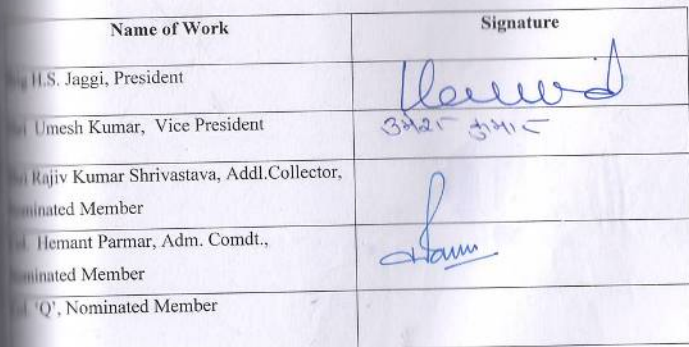 Name of Work Signature
H.S. Jaggi, President
Umesh Kumar, Vice President उमेश कुमार
Rajiv Kumar Shrivastava, Addl.Collector,
Member
Hemant Parmar, Adm. Comdt.,
Member
'Q', Nominated Member